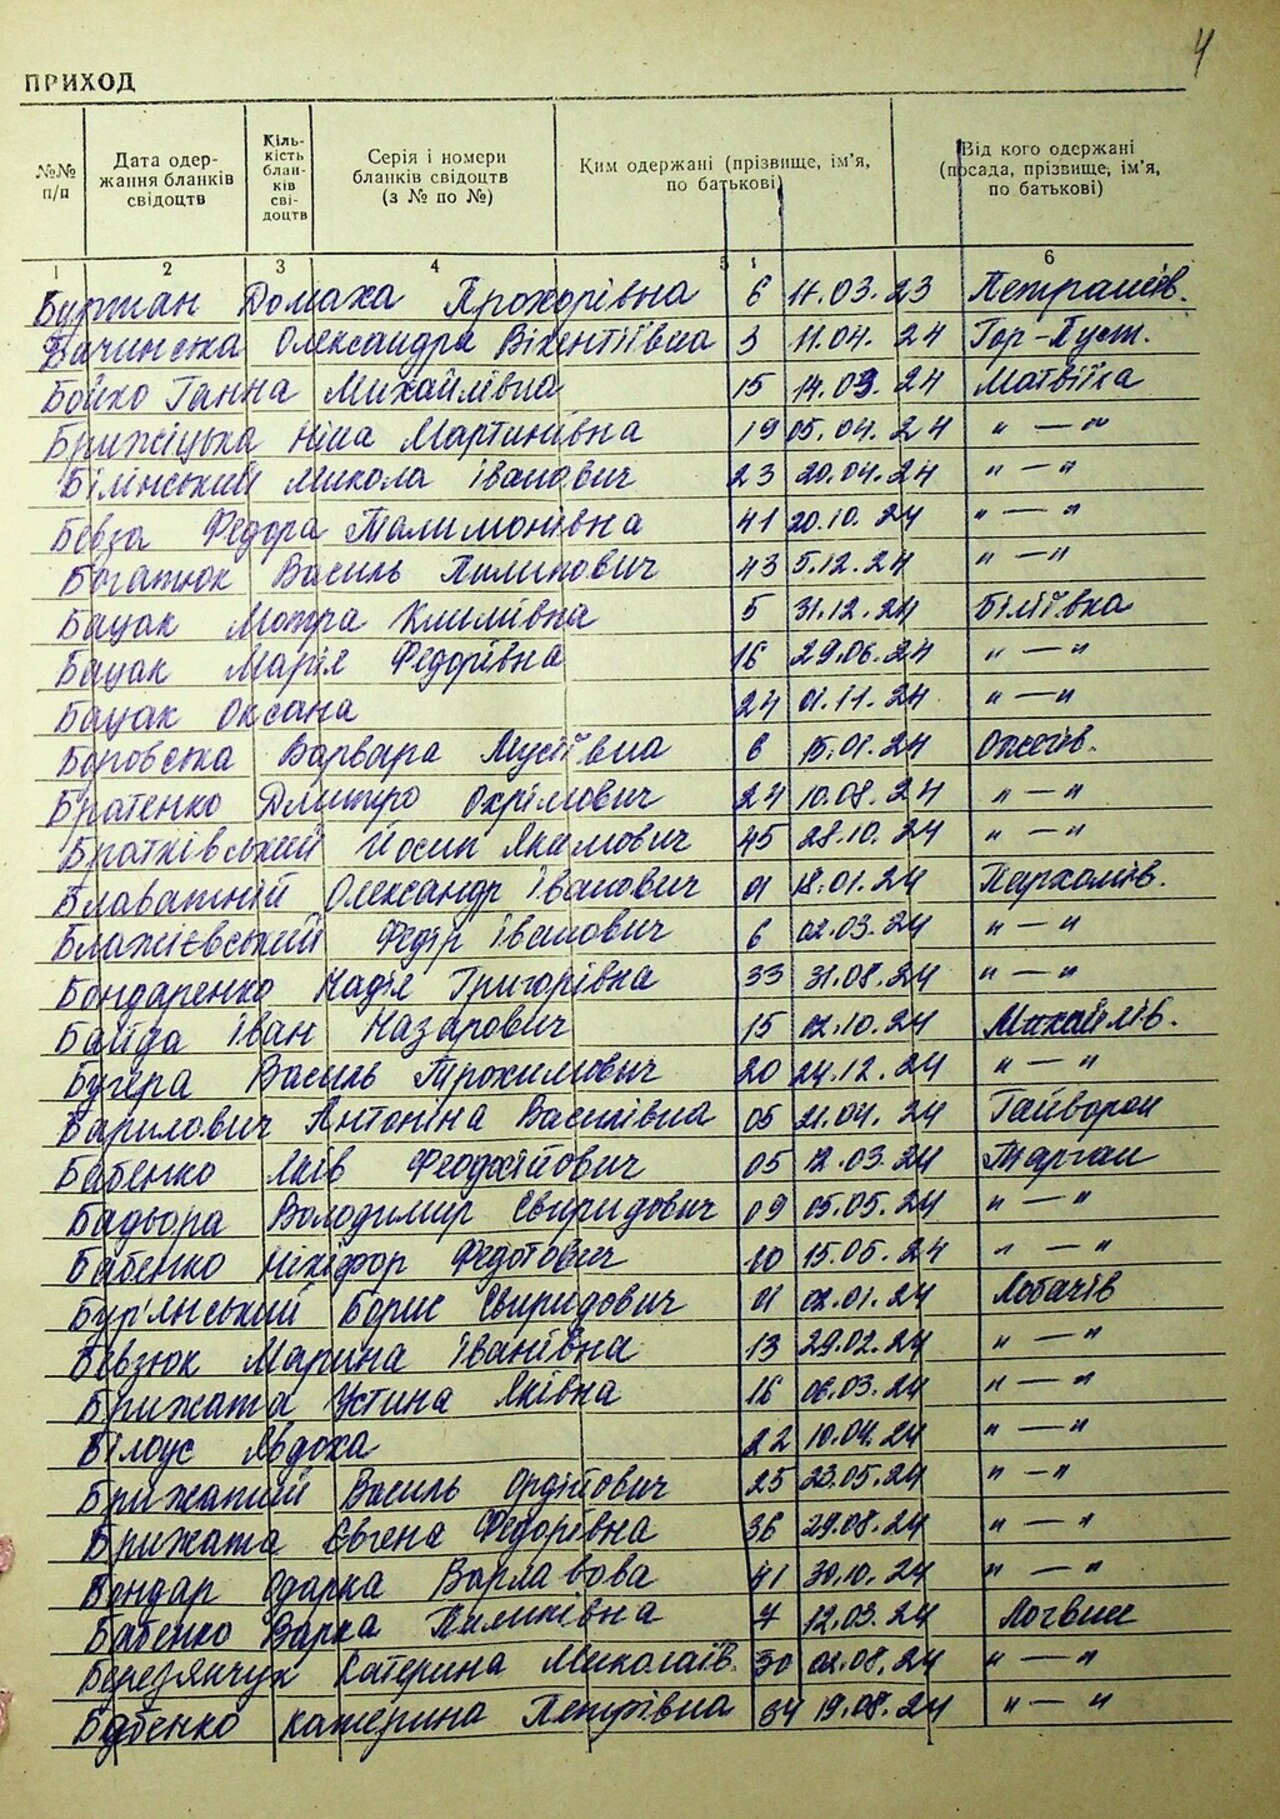 4
ПРИХОД
№№ п/п
Дата одер-
жання бланків
свідоцтв
Кіль-
кість
блан-
ків
сві-
доцтв
Серія і номери
бланків свідоцтв
(з № по №)
Ким одержані (прізвище, ім'я,
по батькові)
Від кого одержані
(посада, прізвище, ім'я,
по батькові)
1 2 3 4 5 6
Буртан Домаха Прохорівна 6 17.03.23 Петрашів.
Бачинська Олександра Вікентіївна 3 11.04. 24 Гор-Пуст.
Бойко Ганна Михайлівна 15 14.03. 24 Матвіїха
Брижіцька Ніна Мартинівна 19 05.04. 24 " — "
Білінський Микола Іванович 23 20.04.24 " — "
Бевза Федора Талимонівна 41 20.10. 24 " — "
Богатюк Василь Пилипович 43 5.12.24 " — "
Бацак Мотря Климівна 5 31.12.24 Біліївка
Бацак Марія Федорівна 16 29.06.24 " — "
Бацак Оксана 24 01.11.24 " — "
Боровська Варвара Мусіївна 6 15.01.24 Ожегів.
Братенко Дмитро Охрімович 24 10.08.24 " — "
Братківський Йосип Якимович 45 28.10.24 " — "
Блаватний Олександр Іванович 01 18.01.24 Пархомів.
Блажієвський Федір Іванович 6 02.03.24 " — "
Бондаренко Надія Григорівна 33 31.08.24 " — "
Байда Іван Назарович 15 02.10.24 Михайлів.
Бугера Василь Трохимович 20 24.12.24 " — "
Барилович Антоніна Василівна 05 21.04.24 Гайворон
Бабенко Яків Феодосійович 05 12.03.24 Тарган
Бадьора Володимир Свиридович 09 05.05.24 " — "
Бабенко Нікіфор Федотович 10 15.05.24 " — "
Бур'янський Борис Свиридович 01 02.01.24 Лобачів
Бевзюк Марина Іванівна 13 29.02.24 " — "
Брижата Устина Яківна 16 06.03.24 " — "
Білоус Явдоха 22 10.04.24 " — "
Брижатий Василь Ордійович 25 23.05.24 " — "
Брижата Євгена Федорівна 36 29.08.24 " — "
Бондар Одарка Варлавова 41 30.10.24 " — "
Бабенко Варка Пилипівна 7 12.03.24 Логвин
Березянчук Катерина Миколаїв. 30 02.08.24 " — "
Бабенко Катерина Петрівна 34 19.08.24 " — "